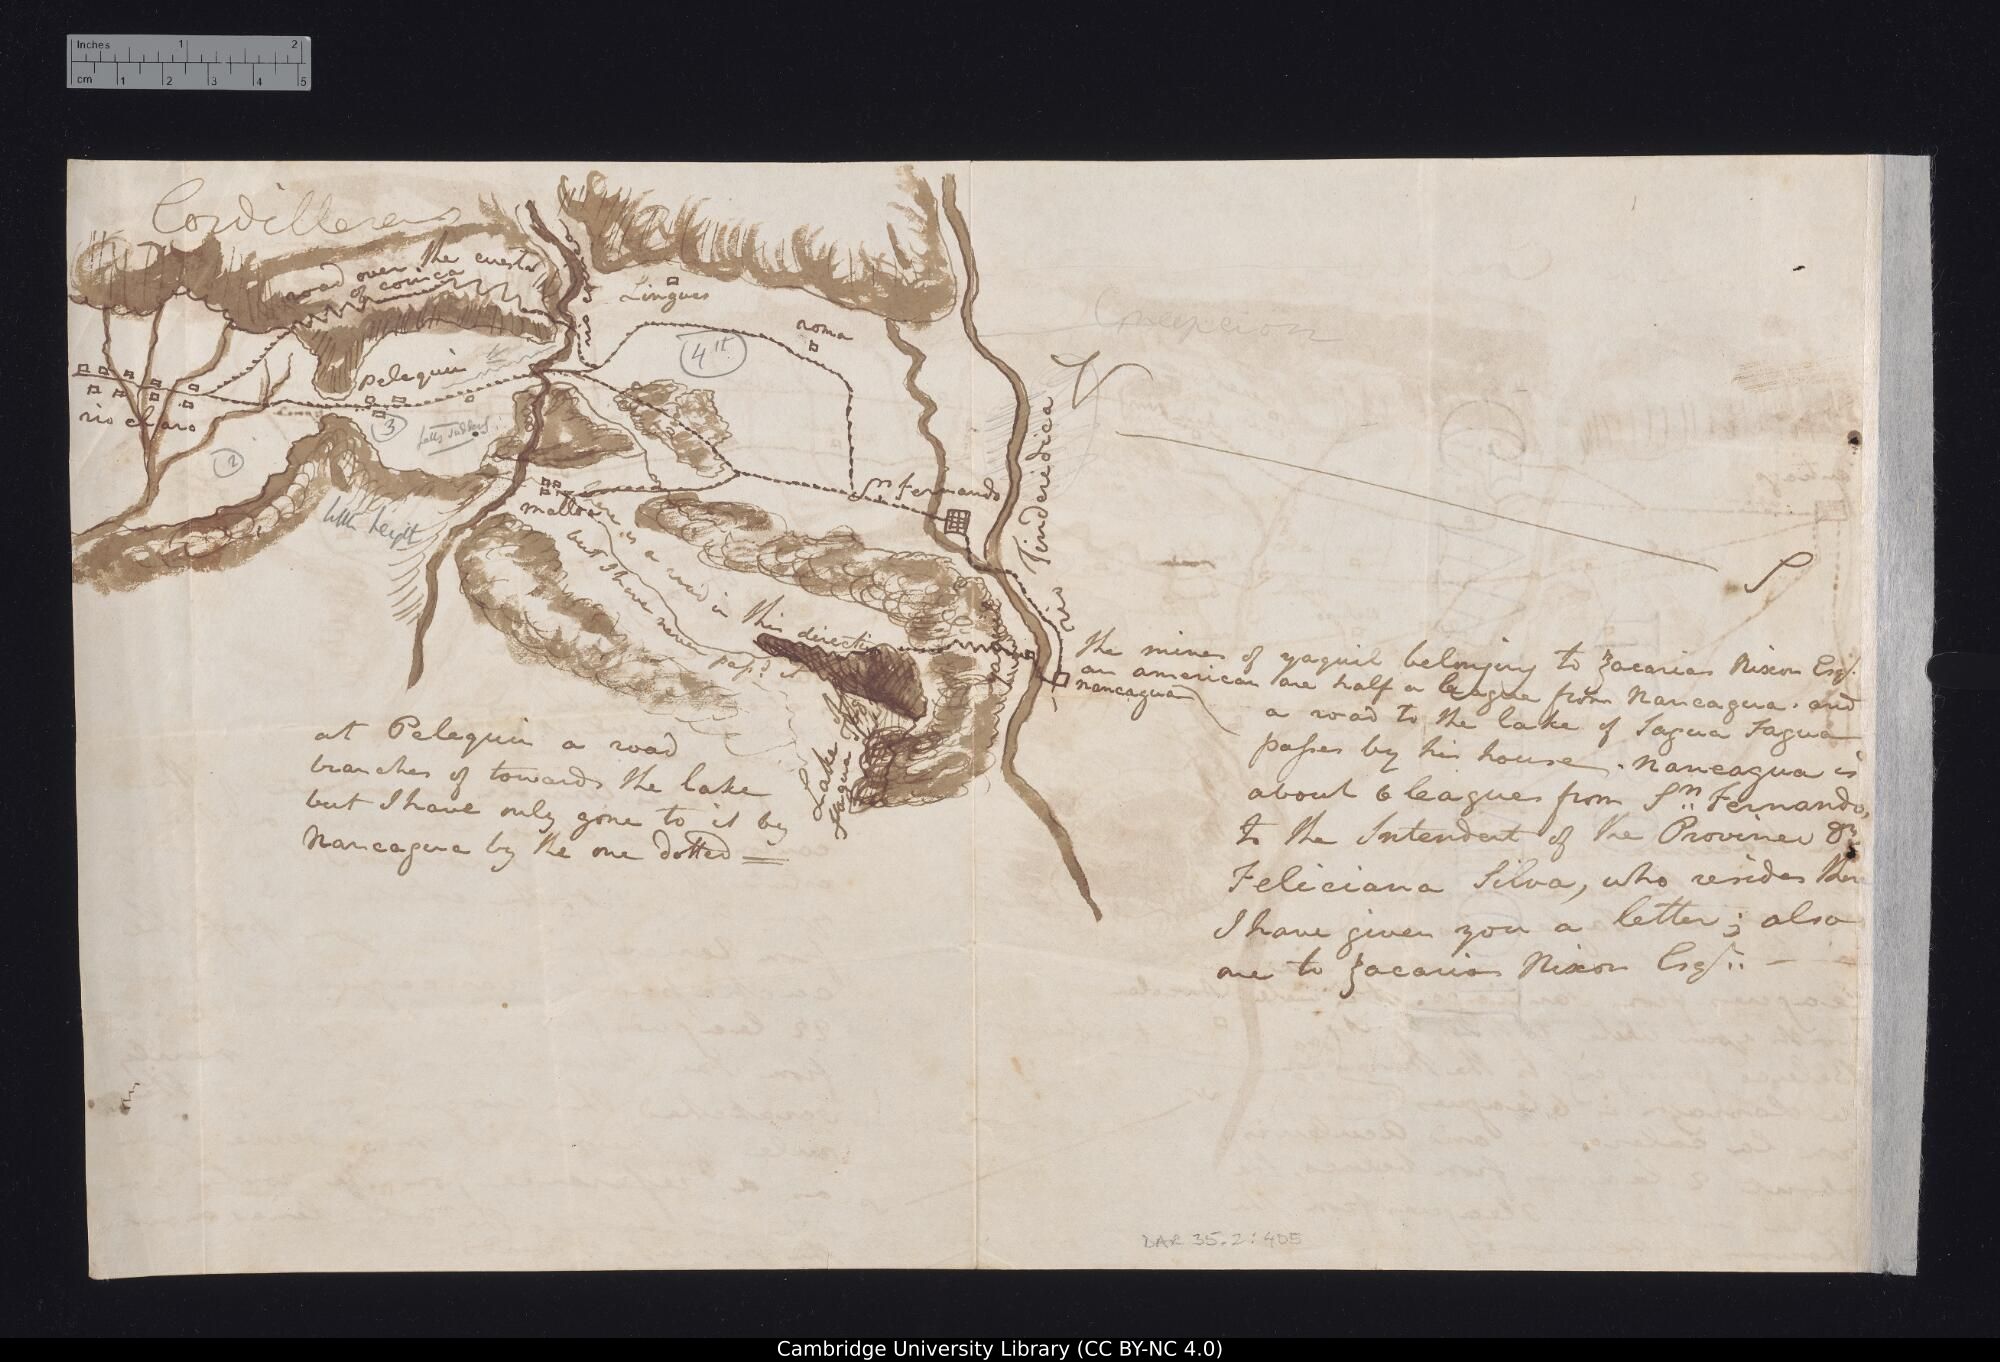 Inches 1 2
cm 1 2 3 4 5
Cordilleras
road over the cuesta
of
Lingues
roma
4th
Concepcion
pelequin
rio claro
3
2
little height
malloa
Sn Fernando
rio Tinderidica
N
S
there is a road in this direction
but I have never passd it
Lake of
Tagua Tagua
nancagua
the mines of yaquil belonging to Zacarias Nixon Esqr.
an american are half a league from Nancagua. and
a road to the lake of Tagua Tagua
passes by his house. Nancagua is
about 6 leagues from Sn Fernando,
to the Intendent of the Province Dn
Feliciana Silva, who resides there
I have given you a letter; also
one to Zacarias Nixon Esqr
at Pelequin a road
branches of towards the lake
but I have only gone to it by
Nancagua by the one dotted
DAR 35.2:405
Cambridge University Library (CC BY-NC 4.0)